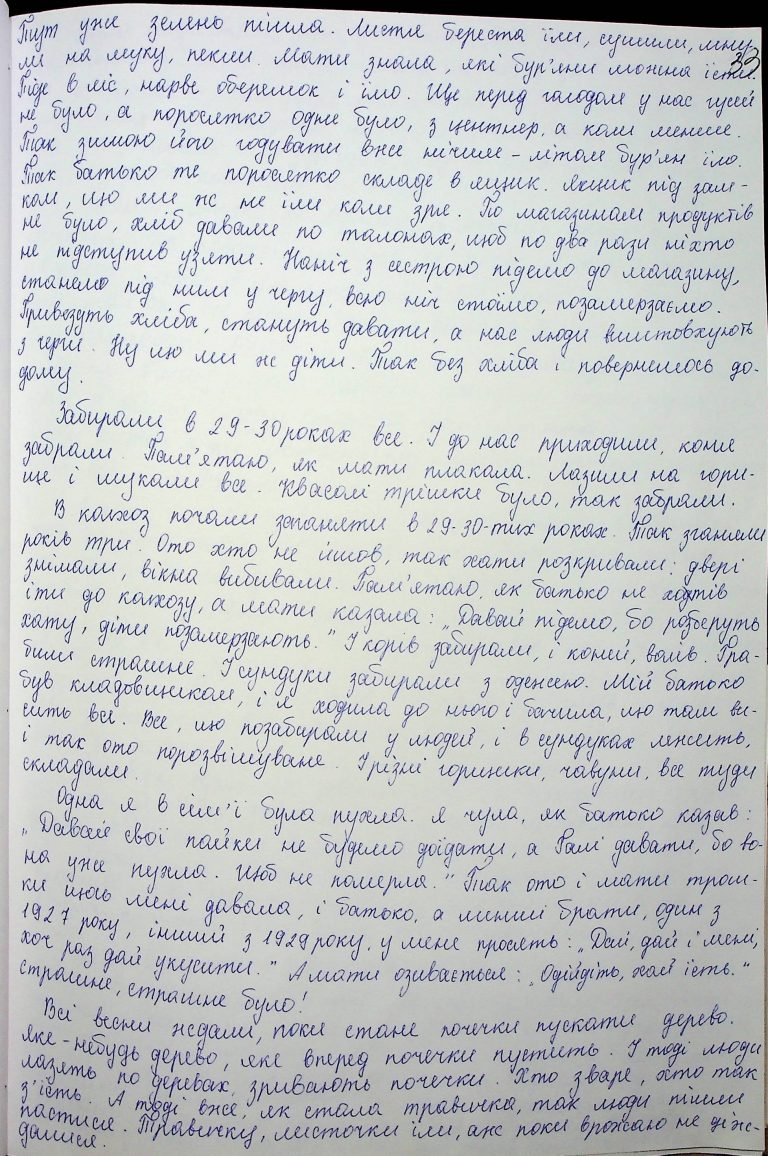 33
Тут уже зелень пішла. Листя береста їли, сушили, мну-
ли на муку, пекли. Мати знала, які бур'яни можна їсти.
Піде в ліс, нарве оберемок і їмо. Ще перед голодом у нас гусей
не було, а поросятко одне було, з центнер, а коли менше.
Так зимою його годувати вже нічим – літом бур'ян їло.
Так батько те поросятко складе в ящик. Ящик під зам-
ком, що ми ж не їли коли зря. По магазинам продуктів
не було, хліб давали по талонах, щоб по два рази ніхто
не підступив узяти. Наніч з сестрою підемо до магазину,
станемо під ним у чергу, всю ніч стоїмо, позамерзаємо.
Привезуть хліба, стануть давати, а нас люди виштовхують
з черги. Ну що ми ж діти. Так без хліба і повернешось до-
дому.
Забирали в 29-30 роках все. І до нас приходили, коня
забрали. Пам'ятаю, як мати плакала. Лазили на гори-
ще і шукали все. Квасолі трішки було, так забрали.
В колхоз почали заганяти в 29-30-тих роках. Так зганяли
років три. Ото хто не йшов, так хати розкривали: двері
знімали, вікна вибивали. Пам'ятаю, як батько не хотів
іти до колхозу, а мати казала: „Давай підемо, бо розберуть
хату, діти позамерзають." І корів забирали, і коней, волів. Гра-
били страшне. І сундуки забирали з одежею. Мій батько
був кладовщиком, і я ходила до нього і бачила, що там ви-
сить все. Все, що позабирали у людей, і в сундуках лежить,
і так ото порозвішуване. І різні горщики, чавуни, все туди
складали.
Одна я в сім'ї була пухла. Я чула, як батько казав:
„Давай свої пайки не будемо доїдати, а Галі давати, бо во-
на уже пухла. Щоб не померла." Так ото і мати трош-
ки щось мені давала, і батько, а менші брати, один з
1927 року, інший з 1929 року, у мене просять: „Дай, дай і мені,
хоч раз дай укусити." А мати озивається: „Одійдіть, хай їсть."
Страшне, страшне було!
Всі весни ждали, поки стане почечки пускати дерево.
Яке-небудь дерево, яке вперед почечки пустить. І тоді люди
лазять по деревах, зривають почечки. Хто зваре, хто так
з'їсть. А тоді вже, як стала травичка, так люди пішли
пастися. Травичку, листочки їли, аж поки врожаю не діж-
далися.